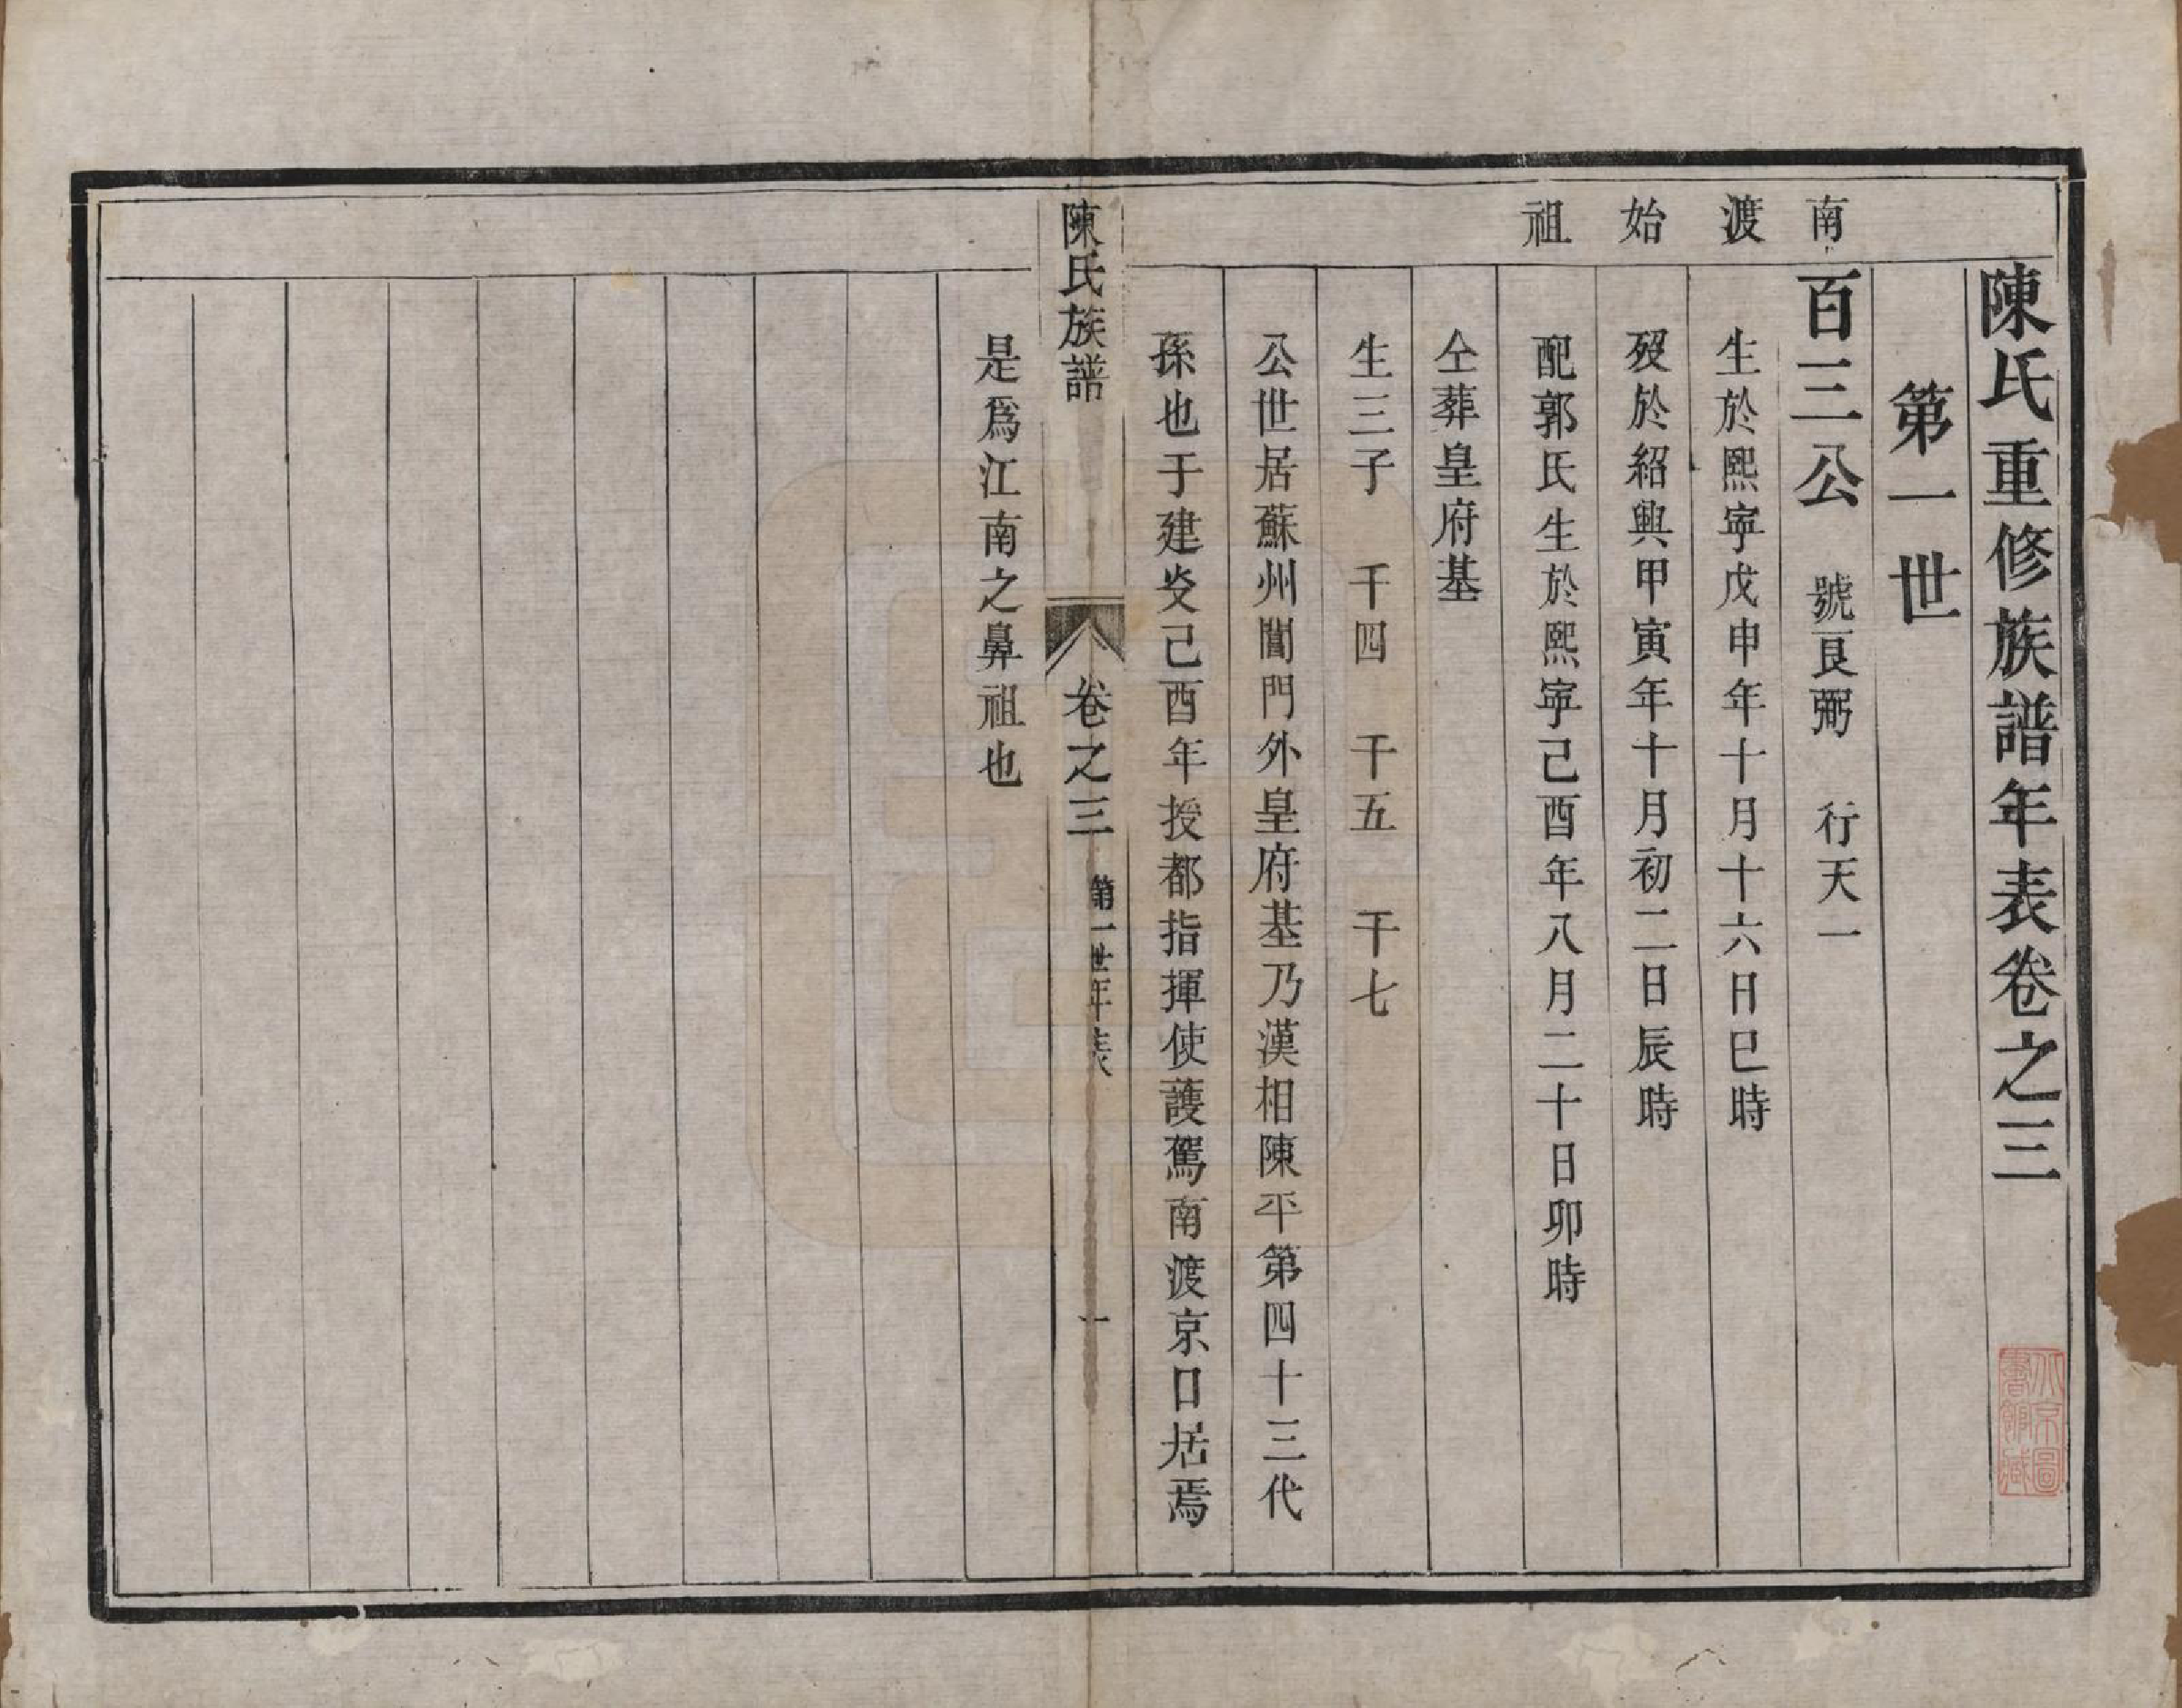 陳氏重修族譜年表卷之三
第一世
南渡始祖
百三公 號良弼 行天一
生於熙寧戊申年十月十六日巳時
歿於紹興甲寅年十月初二日辰時
配郭氏生於熙寧己酉年八月二十日卯時
仝葬皇府基
生三子 千四 千五 千七
公世居蘇州閶門外皇府基乃漢相陳平第四十三代
孫也于建炎己酉年授都指揮使護駕南渡京口居焉
陳氏族譜 卷之三 第一世年表 一
是爲江南之鼻祖也
北京圖書館藏